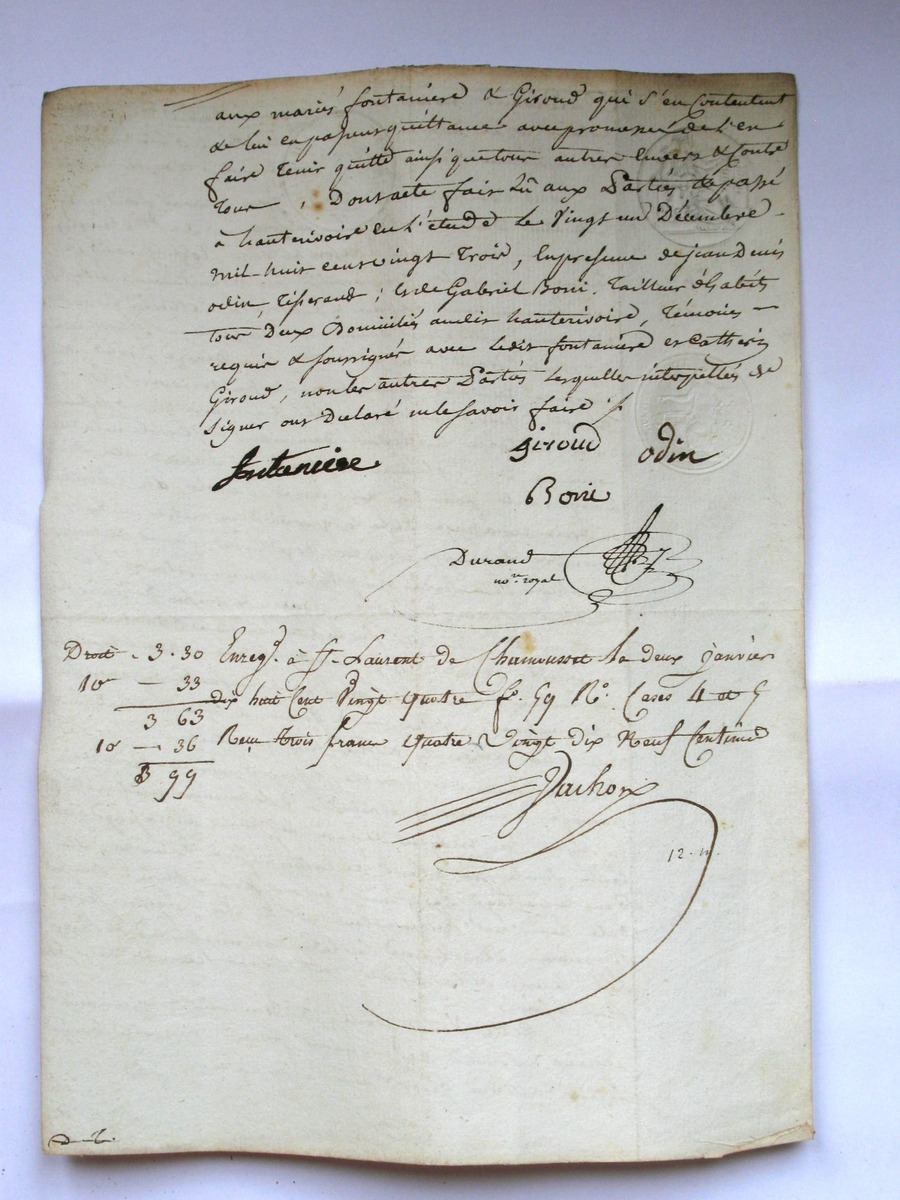 aux mariés fontaniere & Giroud qui s'en Contentent
& lui en passent quittance avec promesse de l'en
faire Tenir quitte ainsi que tous autres Envers & Contre
Tous, Dont acte fait Lû aux Parties & passé
à hauterivoire en l'étude Le Vingt un Décembre
mil huit cent vingt Trois, En presence de jean Denis
odin, Tisserand; et de Gabriel Borri, Tailleur d'habits
tous Deux Domiciliés audit hauterivoire, Témoins
requis & soussignés avec Ledit fontaniere et Catherin
Giroud, non les autres Parties Lesquelles interpellées de
signer ont Déclaré ne le savoir faire
fontaniere Giroud odin
Borri
Durand
no.re royal
Droit - 3 · 30 Enreg.é à St. Laurent de Chamousset le deux janvier
10e — 33 dix huit Cent Vingt quatre f.o 59 R.o Cases 4 et 5
3 63
10e — 36 Reçu trois francs quatre Vingt dix Neuf Centimes
3 99
12